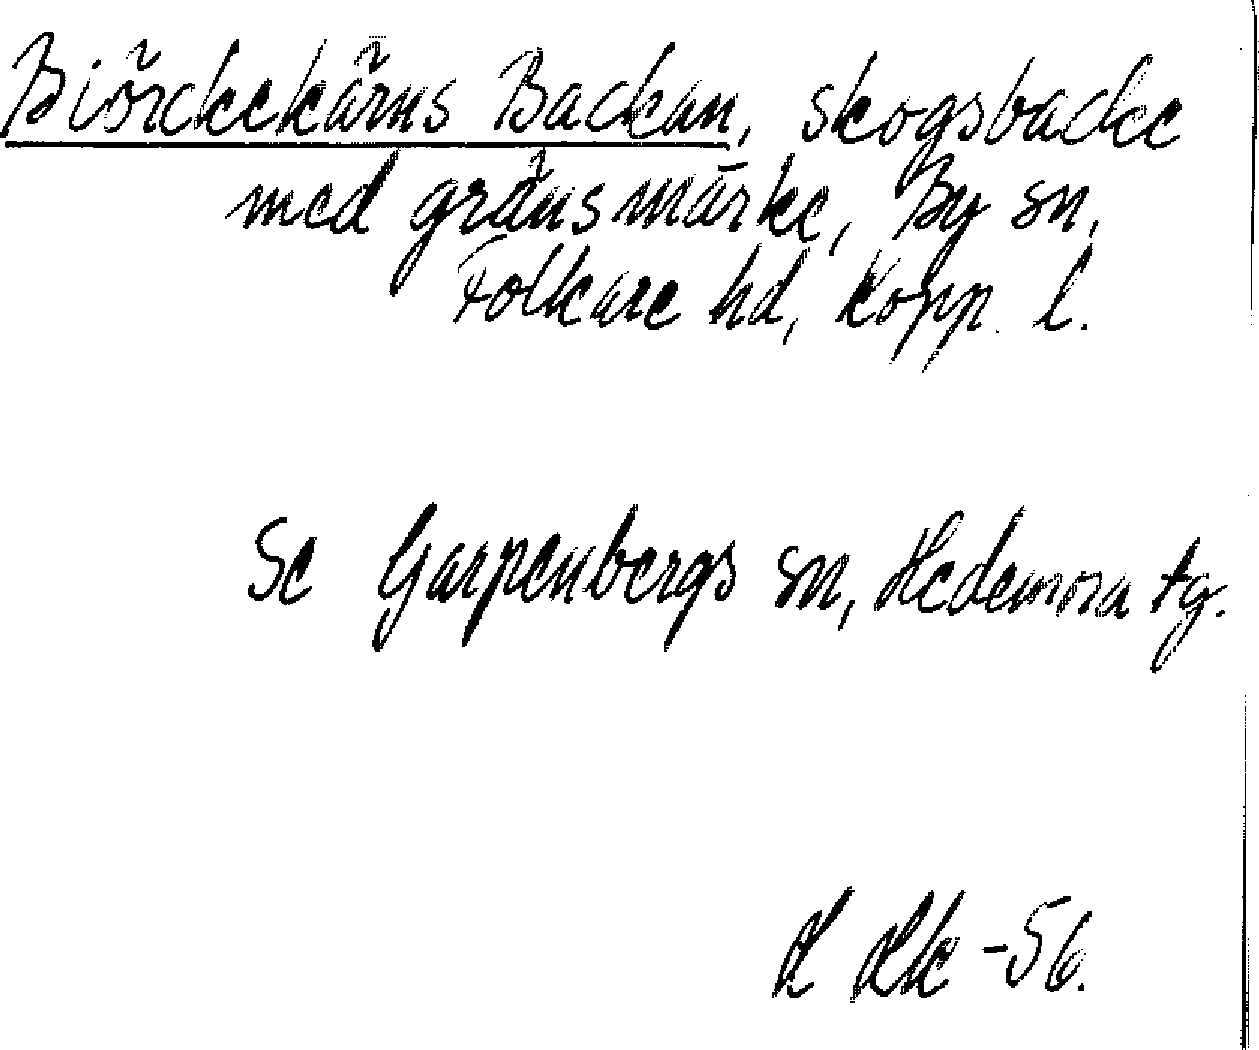 Biörckekärns Backan, skogsbacke
med gränsmärke, By sn,
Folkare hd, Kopp. l.
Se Garpenbergs sn, Hedemora tg.
-56.